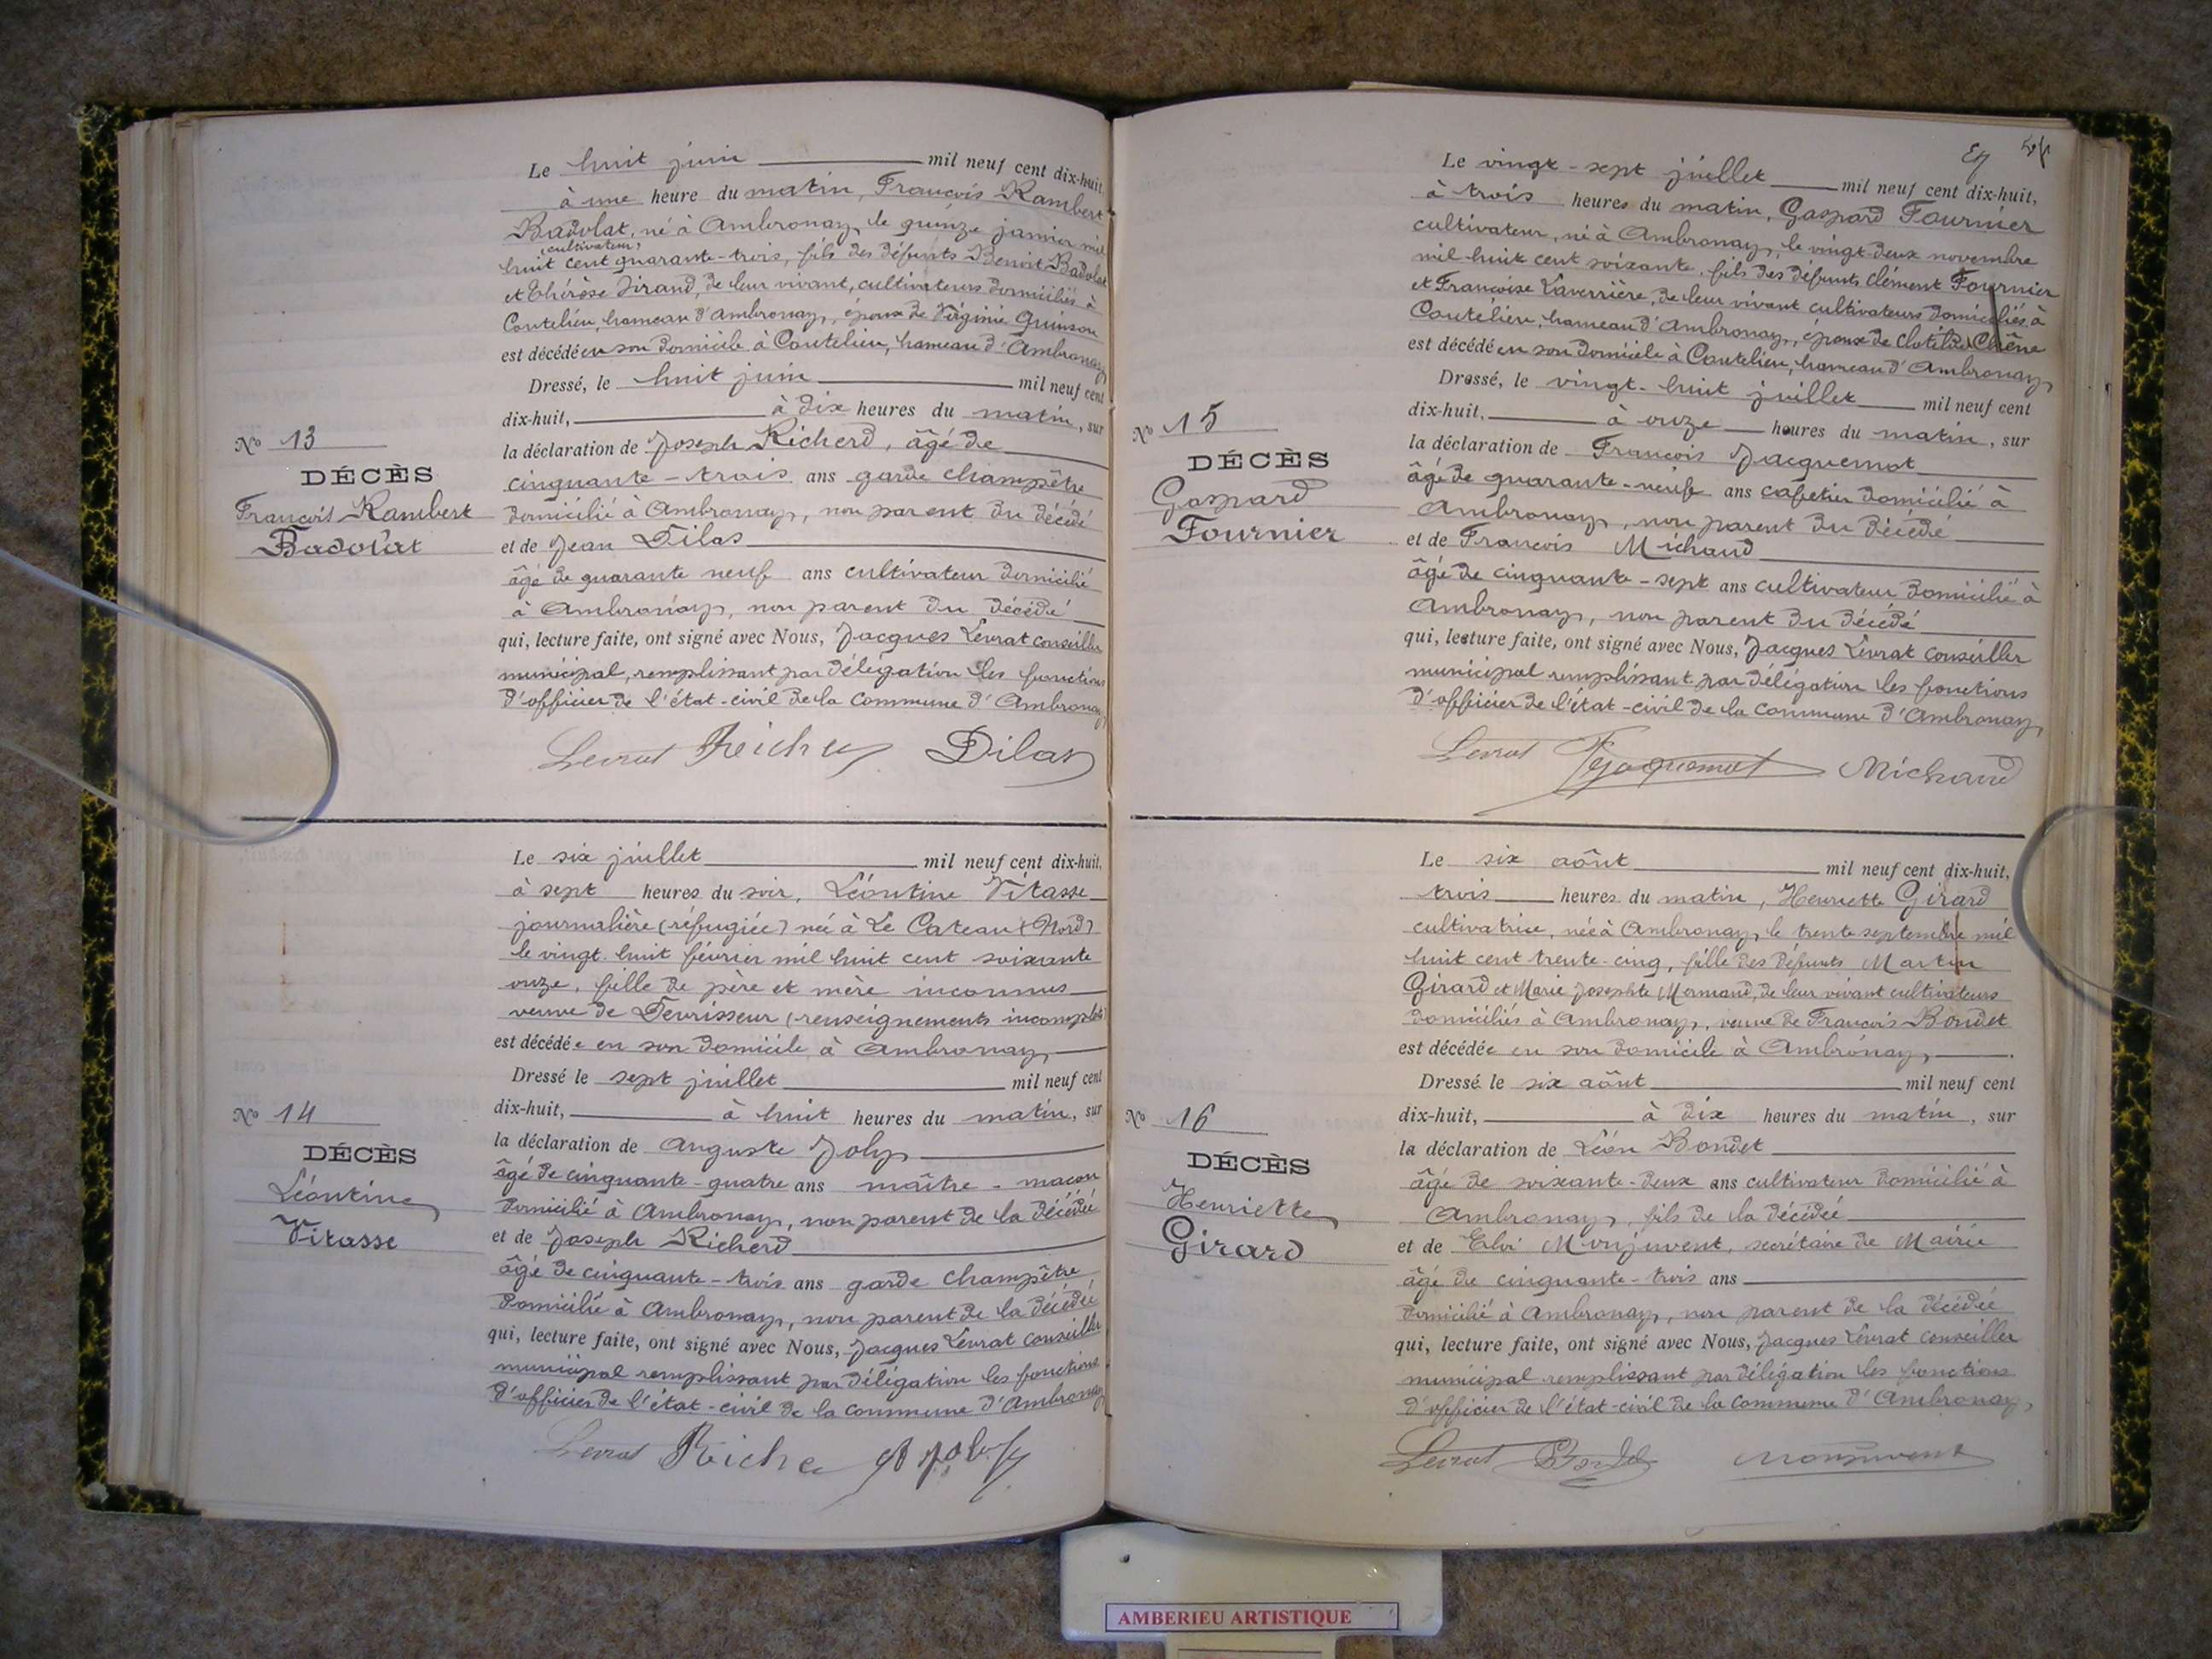 Le huit juin mil neuf cent dix-huit,
à une heure du matin, François Rambert
Badolat, né à Ambronay, le quinze janvier mil
cultivateur,
huit cent quarante-trois, fils des défunts Benoit Badolat
et Thérèse Tirand, de leur vivant, cultivateurs domiciliés à
Coutelieu, hameau d'Ambronay, époux de Virginie Guinson
est décédé en son domicile à Coutelieu, hameau d'Ambronay
Dressé, le huit juin mil neuf cent
dix-huit, à dix heures du matin, sur
la déclaration de Joseph Richerd, âgé de
cinquante-trois ans garde champêtre
domicilié à Ambronay, non parent du décédé
et de Jean Dilas
âgé de quarante neuf ans cultivateur domicilié
à Ambronay, non parent du décédé
qui, lecture faite, ont signé avec Nous, Jacques Levrat conseiller
municipal, remplissant par délégation les fonctions
d'officier de l'état-civil de la commune d'Ambronay
Levrat Richer Dilas
No 13
DÉCÈS
François Rambert
Badolat
Le six juillet mil neuf cent dix-huit,
à sept heures du soir, Léontine Vitasse
journalière (réfugiée) née à Le Cateau (Nord)
le vingt-huit février mil huit cent soixante
onze, fille de père et mère inconnus
veuve de Devrisseur (renseignements incomplets)
est décédée en son domicile à Ambronay
Dressé le sept juillet mil neuf cent
dix-huit, à huit heures du matin, sur
la déclaration de Auguste Joly
âgé de cinquante-quatre ans maître-maçon
domicilié à Ambronay, non parent de la décédée
et de Joseph Richerd
âgé de cinquante-trois ans garde champêtre
domicilié à Ambronay, non parent de la décédée
qui, lecture faite, ont signé avec Nous, Jacques Levrat conseiller
municipal remplissant par délégation les fonctions
d'officier de l'état-civil de la commune d'Ambronay
Levrat Riche A Joly
No 14
DÉCÈS
Léontine
Vitasse
Le vingt-sept juillet mil neuf cent dix-huit,
à trois heures du matin, Gaspard Fournier
cultivateur, né à Ambronay, le vingt-deux novembre
mil-huit cent soixante, fils des défunts Clément Fournier
et Françoise Laverrière, de leur vivant cultivateurs domiciliés à
Coutelieu, hameau d'Ambronay, époux de Clotilde Chêne
est décédé en son domicile à Coutelieu, hameau d'Ambronay
Dressé, le vingt-huit juillet mil neuf cent
dix-huit, à onze heures du matin, sur
la déclaration de François Jacquemot
âgé de quarante-neuf ans cafetier domicilié à
Ambronay, non parent du décédé
et de François Michaud
âgé de cinquante-sept ans cultivateur domicilié à
Ambronay, non parent du décédé
qui, lecture faite, ont signé avec Nous, Jacques Levrat conseiller
municipal remplissant par délégation les fonctions
d'officier de l'état-civil de la commune d'Ambronay
Levrat Jaquemot Michaud
No 15
DÉCÈS
Gaspard
Fournier
Le six août mil neuf cent dix-huit,
trois heures du matin, Henriette Girard
cultivatrice, née à Ambronay, le trente septembre mil
huit cent trente-cinq, fille des défunts Martin
Girard et Marie Josephte Mermand, de leur vivant cultivateurs
domiciliés à Ambronay, veuve de François Bondet
est décédée en son domicile à Ambronay,
Dressé le six août mil neuf cent
dix-huit, à dix heures du matin, sur
la déclaration de Léon Bondet
âgé de soixante-deux ans cultivateur domicilié à
Ambronay, fils de la décédée
et de Eloi Monjuvent, secrétaire de Mairie
âgé de cinquante-trois ans
domicilié à Ambronay, non parent de la décédée
qui, lecture faite, ont signé avec Nous, Jacques Levrat conseiller
municipal remplissant par délégation les fonctions
d'officier de l'état-civil de la commune d'Ambronay,
Levrat Bondet Monjuvent
No 16
DÉCÈS
Henriette
Girard
AMBERIEU ARTISTIQUE